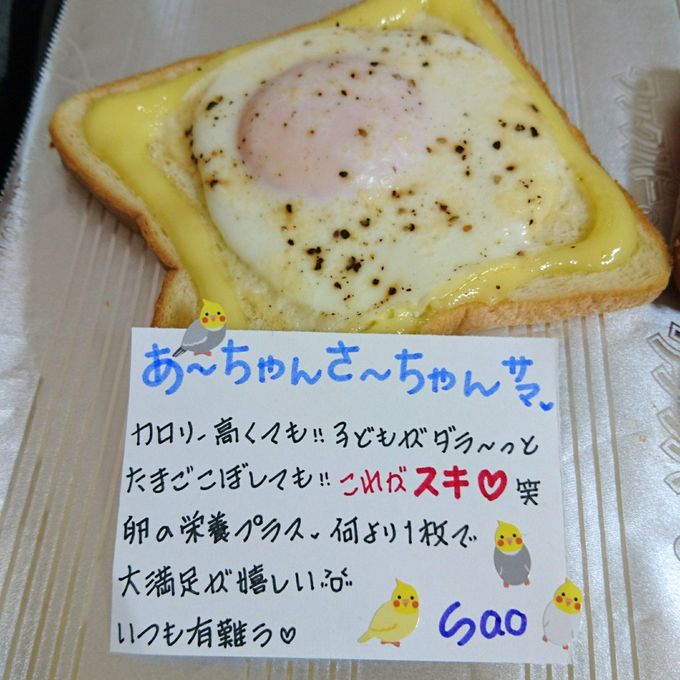 あ～ちゃんさ～ちゃんサマ♥
カロリー高くても!!子どもがダラ～っと
たまごこぼしても!!これがスキ♡笑
卵の栄養プラス♥何より1枚で
大満足が嬉しい
いつも有難う♡
Sao